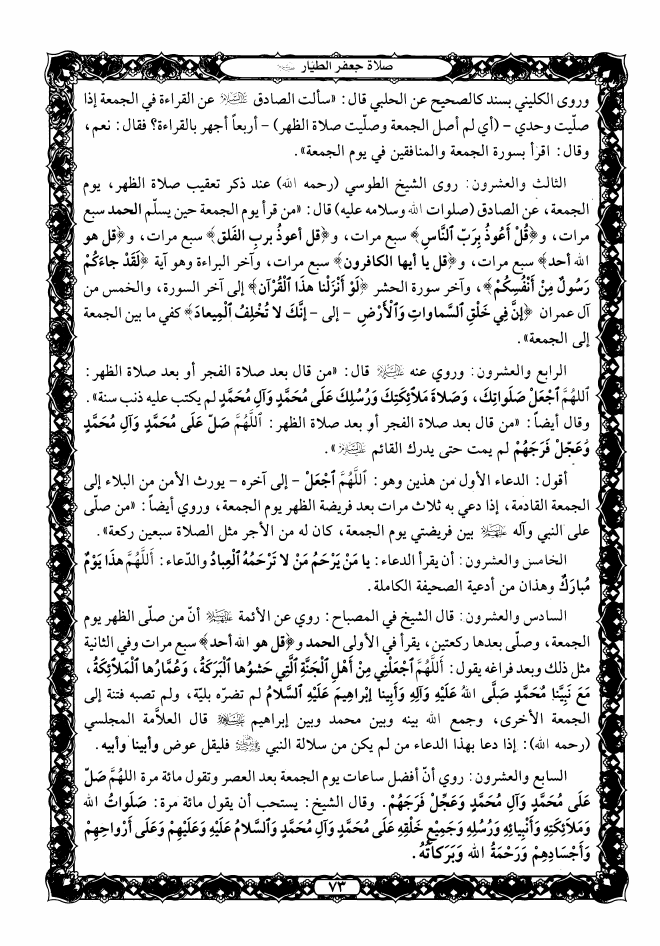 صلاة جعفر الطيّار
وروى الكليني بسند كالصحيح عن الحلبي قال: «سألت الصادق عن القراءة في الجمعة إذا
صلّيت وحدي - (أي لم أصل الجمعة وصلّيت صلاة الظهر) - أربعاً أجهر بالقراءة؟ فقال: نعم،
وقال: اقرأ بسورة الجمعة والمنافقين في يوم الجمعة».
الثالث والعشرون: روى الشيخ الطوسي (رحمه الله) عند ذكر تعقيب صلاة الظهر، يوم
الجمعة، عن الصادق (صلوات الله وسلامه عليه) قال: «من قرأ يوم الجمعة حين يسلّم الحمد سبع
مرات، و﴿قُلْ أَعُوذُ بِرَبِّ النَّاسِ﴾ سبع مرات، و﴿قل أعوذُ بربِ الفَلق﴾ سبع مرات، و﴿قل هو
الله أحد﴾ سبع مرات، و﴿قل يا أيها الكافرون﴾ سبع مرات، وآخر البراءة وهو آية ﴿لَقَدْ جاءَكُمْ
رَسُولٌ مِنْ أَنْفُسِكُمْ﴾، وآخر سورة الحشر ﴿لَوْ أَنْزَلْنا هذَا ٱلْقُرْآنَ﴾ إلى آخر السورة، والخمس من
آل عمران ﴿إِنَّ فِي خَلْقِ ٱلسَّماواتِ وَٱلْأَرْضِ - إلى - إنَّكَ لا تُخْلِفُ ٱلْمِيعادَ﴾ كفي ما بين الجمعة
إلى الجمعة».
الرابع والعشرون: وروي عنه قال: «من قال بعد صلاة الفجر أو بعد صلاة الظهر:
اللهُمَّ ٱجْعَلْ صَلَواتِكَ، وَصَلاةَ مَلائِكَتِكَ وَرُسُلِكَ عَلَى مُحَمَّدٍ وَآلِ مُحَمَّدٍ لم يكتب عليه ذنب سنة».
وقال أيضاً: «من قال بعد صلاة الفجر أو بعد صلاة الظهر: ٱللَّهُمَّ صَلِّ عَلَى مُحَمَّدٍ وَآلِ مُحَمَّدٍ
وَعَجِّلْ فَرَجَهُمْ لم يمت حتى يدرك القائم».
أقول: الدعاء الأول من هذين وهو: ٱللَّهُمَّ ٱجْعَلْ - إلى آخره - يورث الأمن من البلاء إلى
الجمعة القادمة، إذا دعي به ثلاث مرات بعد فريضة الظهر يوم الجمعة، وروي أيضاً: «من صلّى
على النبي وآله بين فريضتي يوم الجمعة، كان له من الأجر مثل الصلاة سبعين ركعة».
الخامس والعشرون: أن يقرأ الدعاء: يا مَنْ يَرْحَمُ مَنْ لا تَرْحَمُهُ ٱلْعِبادُ والدّعاء: ٱللَّهُمَّ هذا يَوْمٌ
مُبارَكٌ وهذان من أدعية الصحيفة الكاملة.
السادس والعشرون: قال الشيخ في المصباح: روي عن الأئمة أنّ من صلّى الظهر يوم
الجمعة، وصلّى بعدها ركعتين، يقرأ في الأولى الحمد و﴿قل هو الله أحد﴾ سبع مرات وفي الثانية
مثل ذلك وبعد فراغه يقول: ٱللَّهُمَّ ٱجْعَلْنِي مِنْ أَهْلِ ٱلْجَنَّةِ ٱلَّتِي حَشْوُها ٱلْبَرَكَةُ، وَعُمَّارُها ٱلْمَلائِكَةُ،
مَعَ نَبِيِّنا مُحَمَّدٍ صَلَّى اللهُ عَلَيْهِ وَآلِهِ وَأَبِينا إِبْراهِيمَ عَلَيْهِ ٱلسَّلامُ لم تضرّه بليّة، ولم تصبه فتنة إلى
الجمعة الأخرى، وجمع الله بينه وبين محمد وبين إبراهيم قال العلاَّمة المجلسي
(رحمه الله): إذا دعا بهذا الدعاء من لم يكن من سلالة النبي فليقل عوض وأبينا وأبيه.
السابع والعشرون: روي أنّ أفضل ساعات يوم الجمعة بعد العصر وتقول مائة مرة اللهُمَّ صَلِّ
عَلَى مُحَمَّدٍ وَآلِ مُحَمَّدٍ وَعَجِّلْ فَرَجَهُمْ. وقال الشيخ: يستحب أن يقول مائة مرة: صَلَواتُ الله
وَمَلائِكَتِهِ وَأَنْبِيائِهِ وَرُسُلِهِ وَجَمِيْعِ خَلْقِهِ عَلَى مُحَمَّدٍ وَآلِ مُحَمَّدٍ وَٱلسَّلامُ عَلَيْهِ وَعَلَيْهِمْ وَعَلَى أَرْواحِهِمْ
وَأَجْسادِهِمْ وَرَحْمَةُ الله وَبَرَكاتُهُ.
٧٣